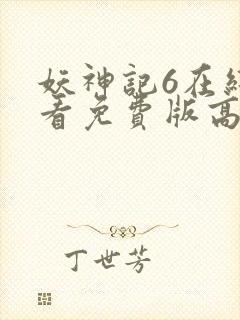 妖神記6在
看免費版高
丁世芳